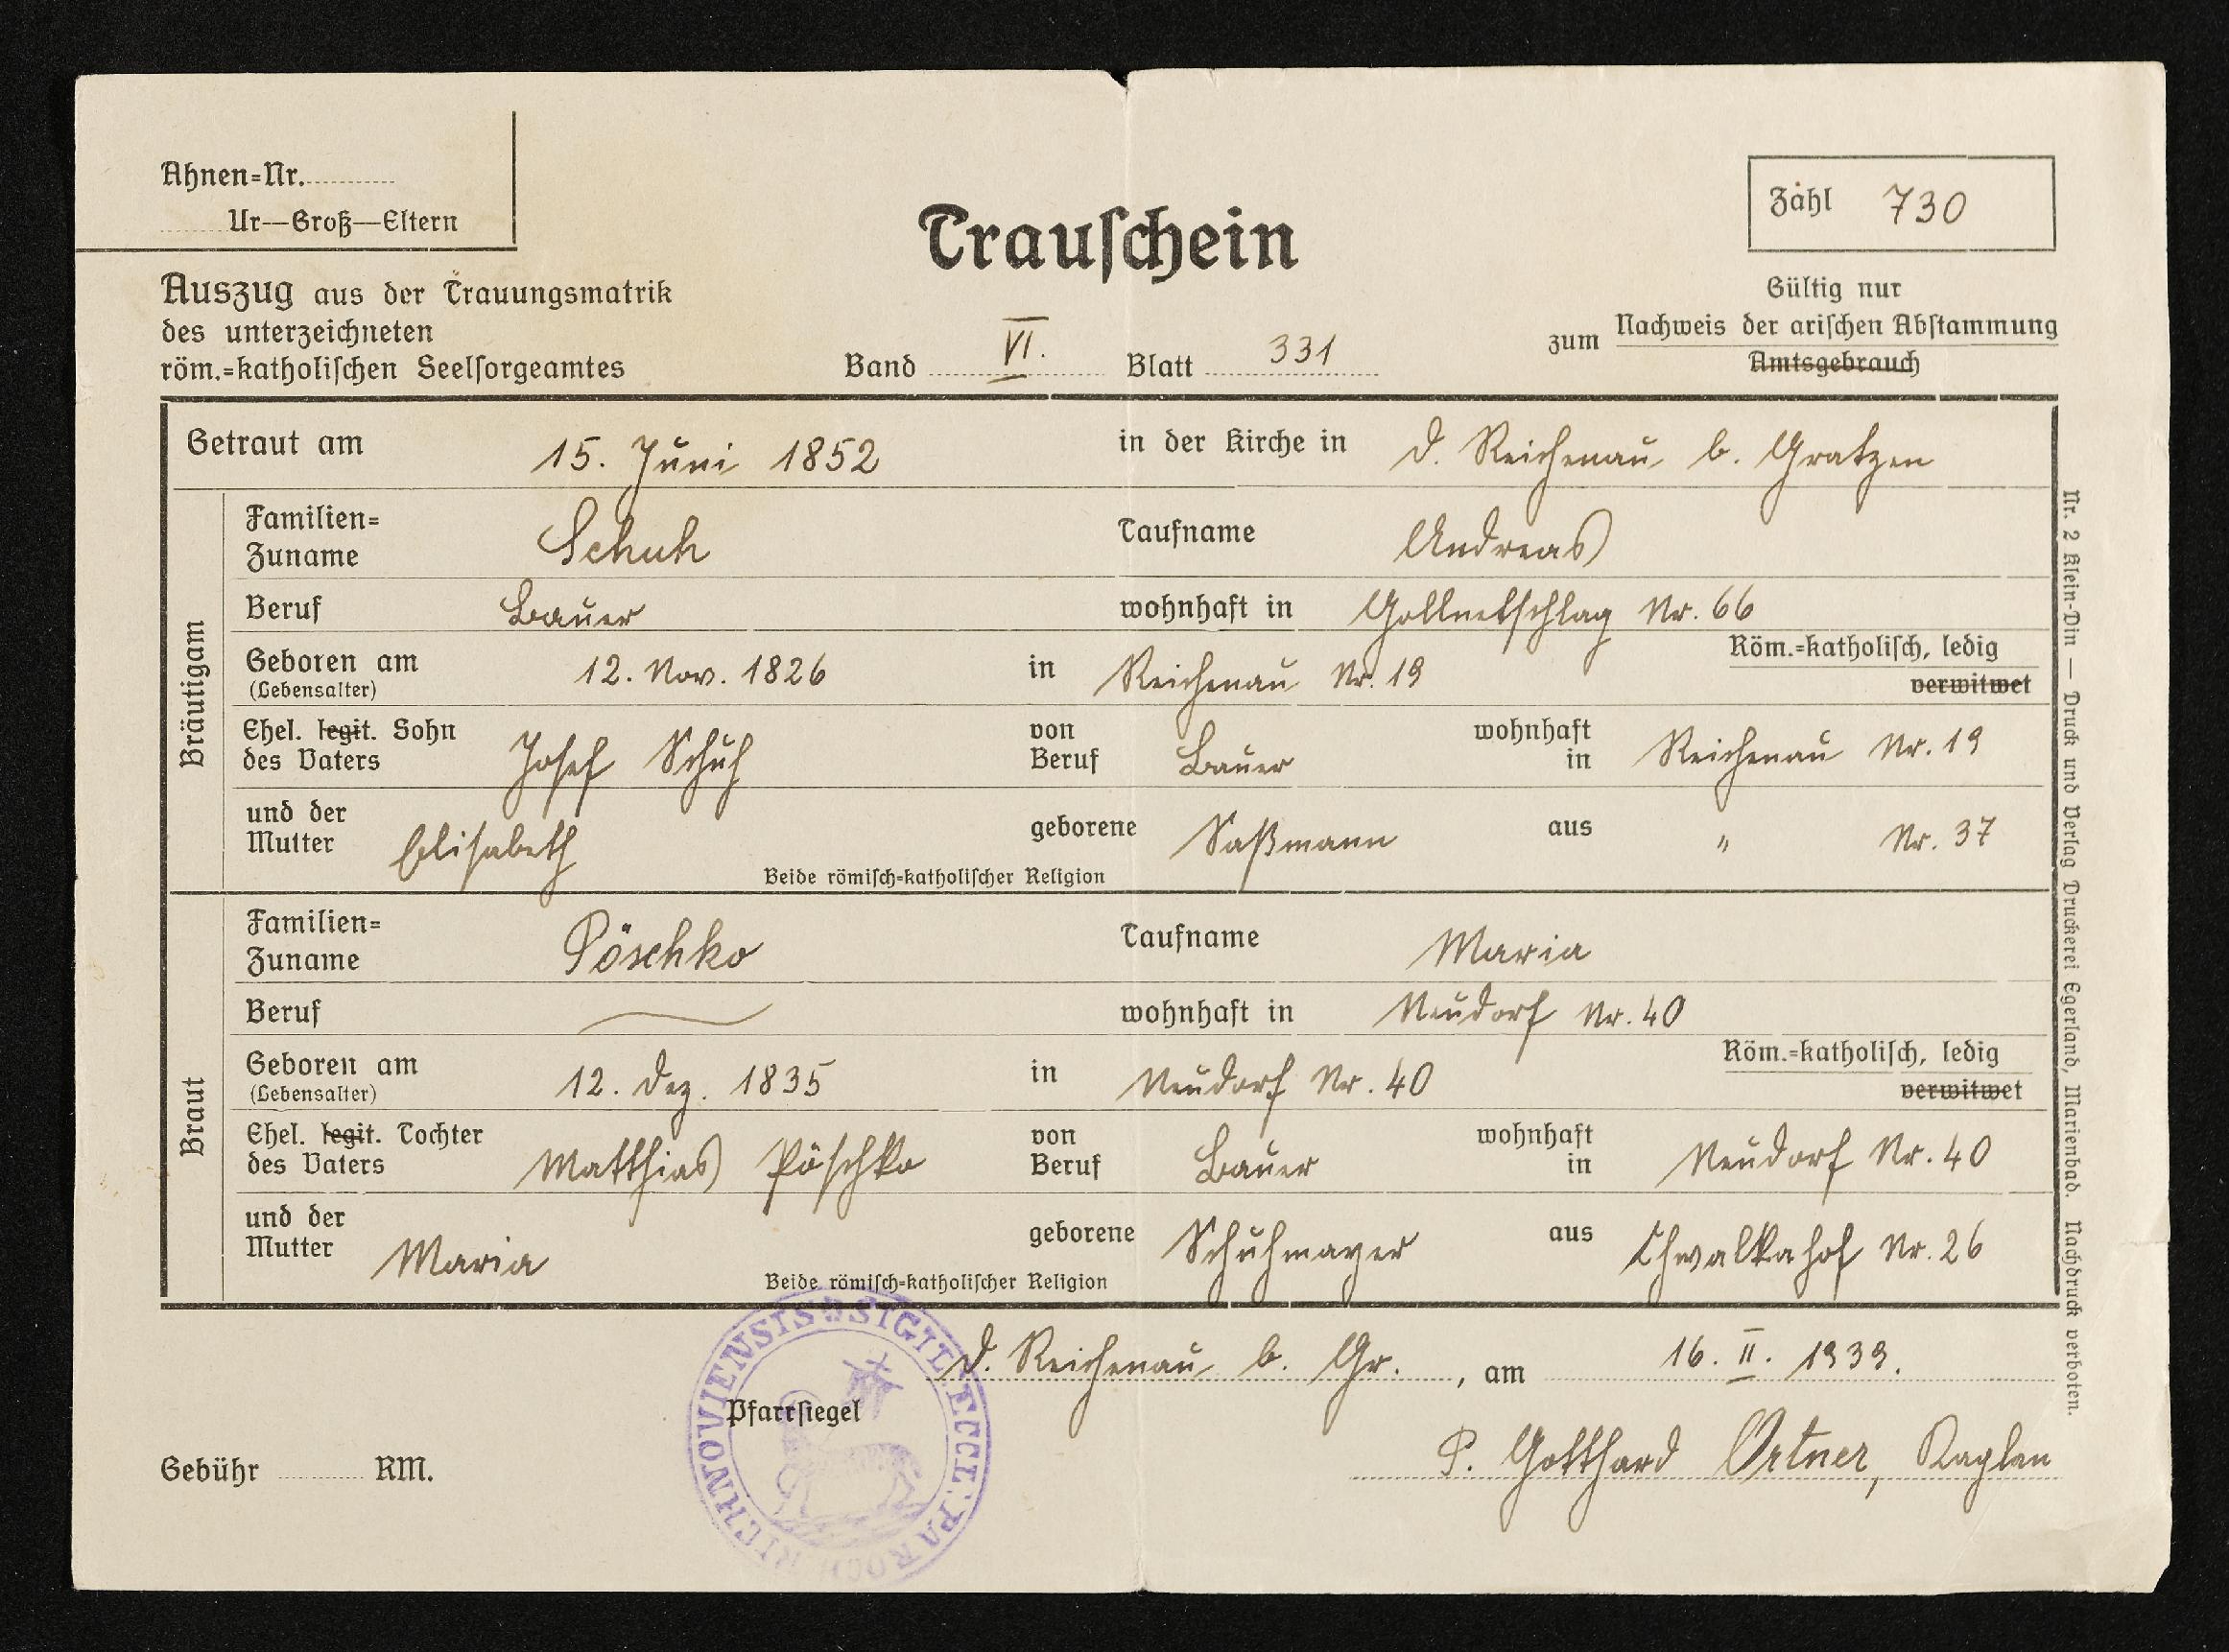 Ahnen=Nr.
Ur—Groß—Eltern
Trauschein
Zahl 730
Auszug aus der Trauungsmatrik
des unterzeichneten
röm.=katholischen Seelsorgeamtes
Band VI. Blatt 331
Gültig nur
zum Nachweis der arischen Abstammung
Amtsgebrauch
Getraut am 15. Juni 1852 in der Kirche in D. Reichenau b. Gratzen
Bräutigam
Familien=
Zuname Schuh Taufname Andreas
Beruf Bauer wohnhaft in Gollnetschlag Nr. 66
Geboren am 12. Nov. 1826 in Reichenau Nr. 19 Röm.=katholisch, ledig
(Lebensalter) verwitwet
Ehel. legit. Sohn von wohnhaft
des Vaters Josef Schuh Beruf Bauer in Reichenau Nr. 19
und der
Mutter Elisabeth geborene Saßmann aus " Nr. 37
Beide römisch=katholischer Religion
Braut
Familien=
Zuname Pöschko Taufname Maria
Beruf wohnhaft in Neudorf Nr. 40
Geboren am 12. Dez. 1835 in Neudorf Nr. 40 Röm.=katholisch, ledig
(Lebensalter) verwitwet
Ehel. legit. Tochter von wohnhaft
des Vaters Matthias Pöschko Beruf Bauer in Neudorf Nr. 40
und der
Mutter Maria geborene Schuhmayer aus Chwalkahof Nr. 26
Beide römisch=katholischer Religion
D. Reichenau b. Gr. , am 16. II. 1939.
Pfarrsiegel
SIGIL. ECCL. PAROCH. RICHNOVIENSIS
P. Gotthard Ortner, Kaplan
Gebühr RM.
Nr. 2 Klein-Din — Druck und Verlag Druckerei Egerland, Marienbad. Nachdruck verboten.